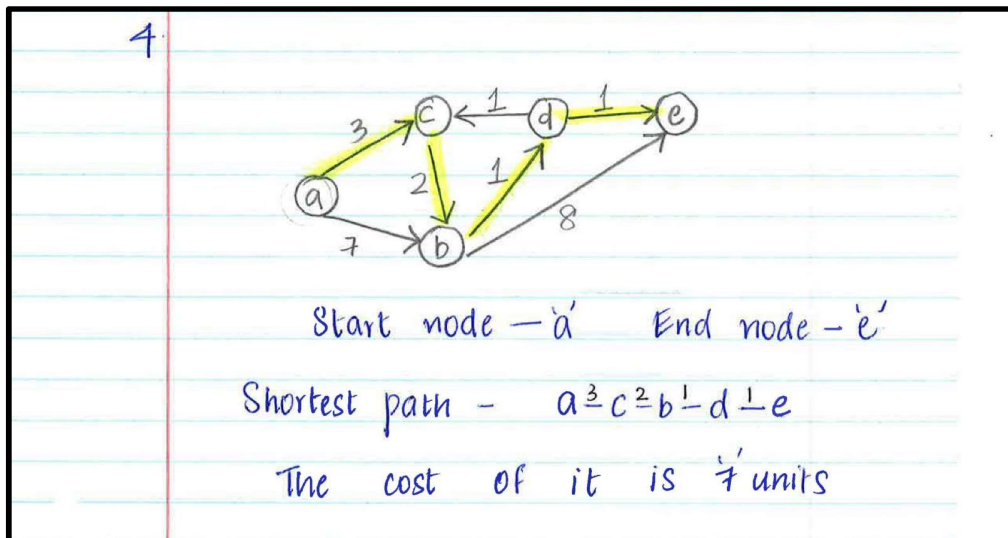 4
c 1 d 1 e
3
2 1
a
7 b 8
Start node - 'a' End node - 'e'
Shortest path - a 3 c 2 b 1 d 1 e
The cost of it is '7' units